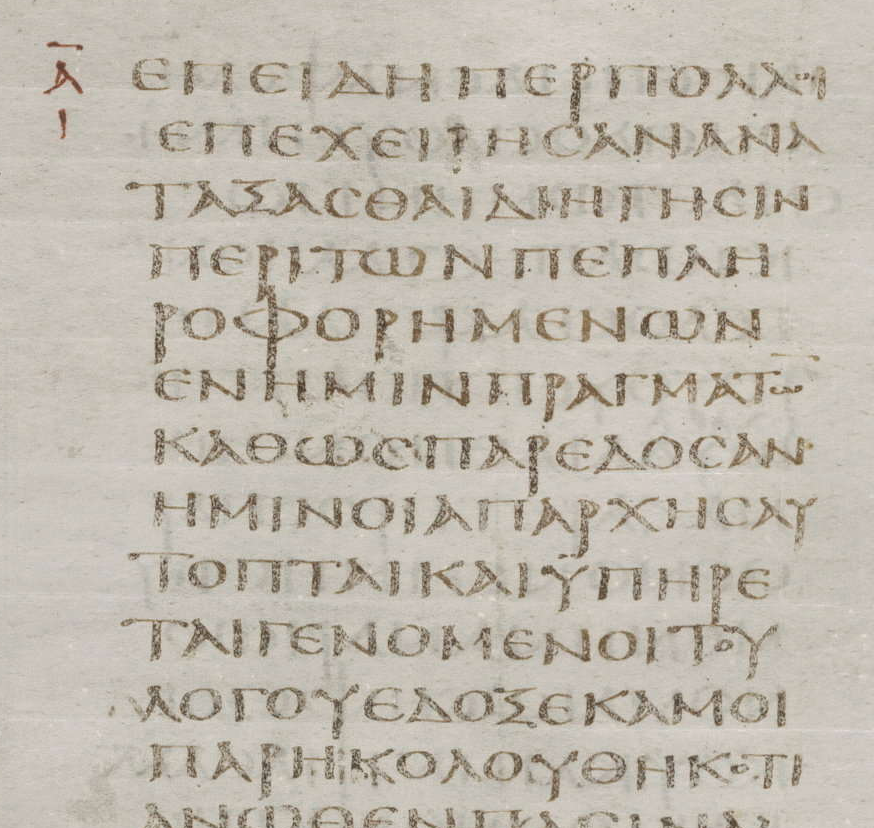 Α ΕΠΕΙΔΗΠΕΡΠΟΛΛΟΙ
Ι ΕΠΕΧΕΙΡΗCΑΝΑΝΑ
ΤΑΞΑCΘΑΙΔΙΗΓΗCΙΝ
ΠΕΡΙΤΩΝΠΕΠΛΗ
ΡΟΦΟΡΗΜΕΝΩΝ
ΕΝΗΜΙΝΠΡΑΓΜΑΤΩ̅
ΚΑΘΩCΠΑΡΕΔΟCΑΝ
ΗΜΙΝΟΙΑΠΑΡΧΗCΑΥ
ΤΟΠΤΑΙΚΑΙΫΠΗΡΕ
ΤΑΙΓΕΝΟΜΕΝΟΙΤΟΥ
ΛΟΓΟΥΕΔΟΞΕΚΑΜΟΙ
ΠΑΡΗΚΟΛΟΥΘΗΚΟΤΙ
ΑΝΩΘΕΝΠΑCΙΝΑΚ